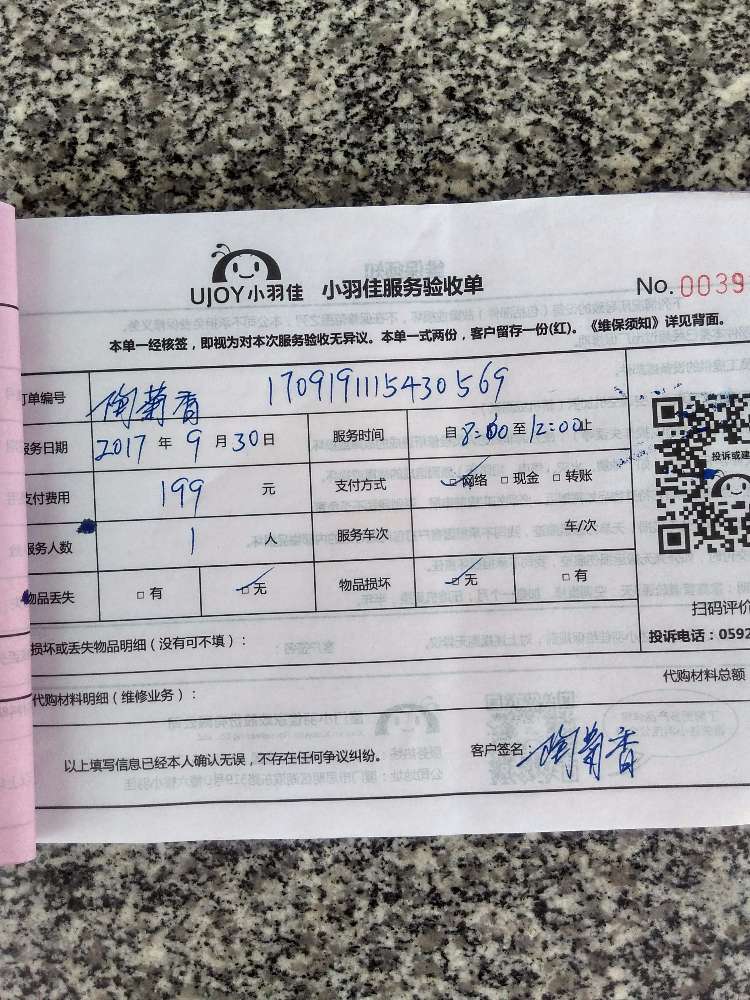 UJOY小羽佳 小羽佳服务验收单 No. 0039
本单一经核签，即视为对本次服务验收无异议。本单一式两份，客户留存一份(红)。《维保须知》详见背面。
订单编号 陶菊香 1709191115430569
服务日期 2017 年 9 月 30 日 服务时间 自 8:00 至 12:00 止
支付费用 199 元 支付方式 ☑网络 □现金 □转账
投诉或建
服务人数 1 人 服务车次 车/次
物品丢失 □有 ☑无 物品损坏 ☑无 □有
扫码评价
损坏或丢失物品明细（没有可不填）： 投诉电话：0592
代购材料明细（维修业务）： 代购材料总额
以上填写信息已经本人确认无误，不存在任何争议纠纷。 客户签名：陶菊香